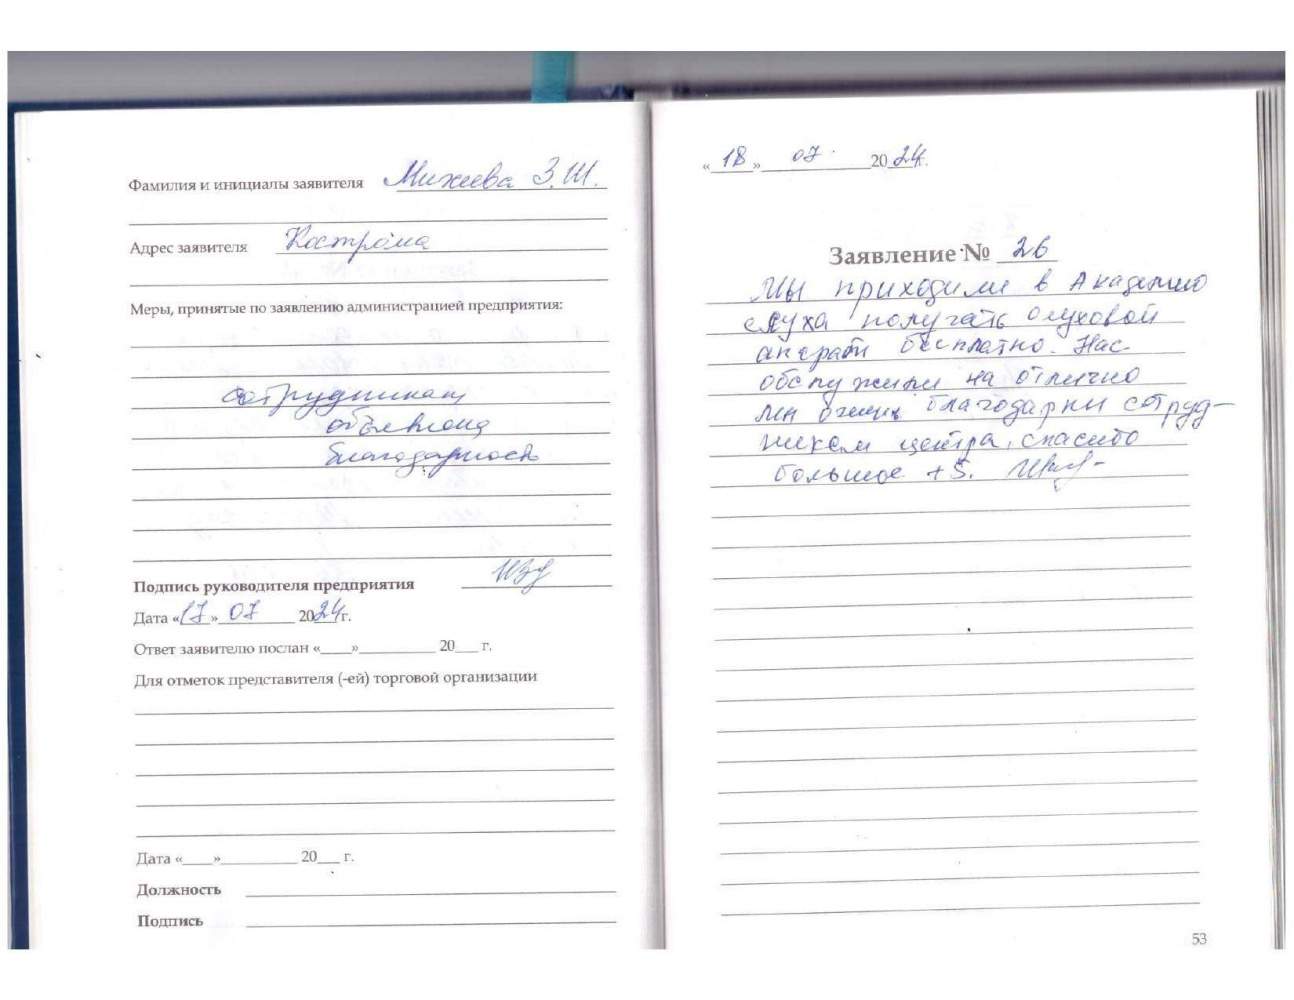 Фамилия и инициалы заявителя Михеева З.Ш.
Адрес заявителя Кострома
Меры, принятые по заявлению администрацией предприятия:
сотрудникам
объявлена
благодарность
Подпись руководителя предприятия
Дата «17» 07 2024 г.
Ответ заявителю послан «____»__________ 20___ г.
Для отметок представителя (-ей) торговой организации
Дата «____»__________ 20___ г.
Должность
Подпись
«18» 07. 2024г.
Заявление № 26
Мы приходили в Академию
слуха получать слуховой
апарат бесплатно. Нас
обслужили на отлично
мы очень благодарны сотруд-
никам центра, спасибо
большое +5.
53